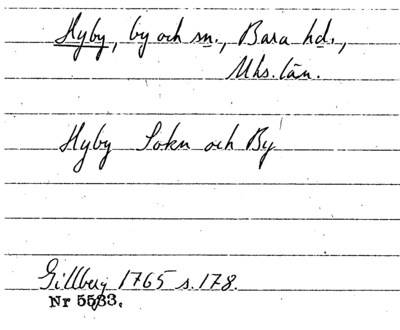 Hyby, by och sn., Bara hd.,
Mhs. län.
Hyby Sokn och By
Gillberg 1765 s. 178.
Nr 5533.